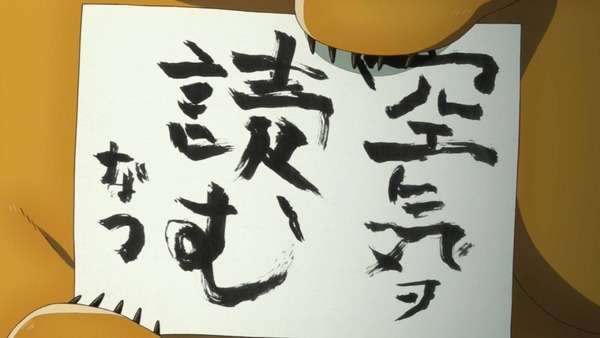 空気ヲ
読む
なつ